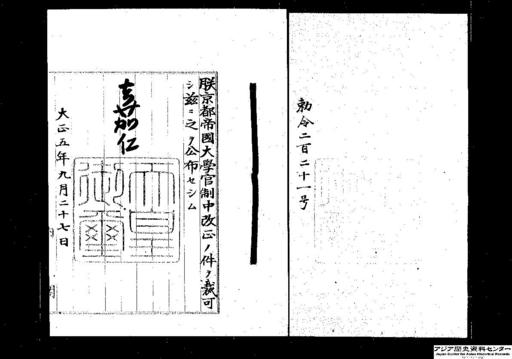 勅令二百二十一号
朕京都帝國大學官制中改正ノ件ヲ裁可
シ茲ニ之ヲ公布セシム
嘉仁
天皇御璽
大正五年九月二十七日
アジア歴史資料センター
Japan Center for Asian Historical Records